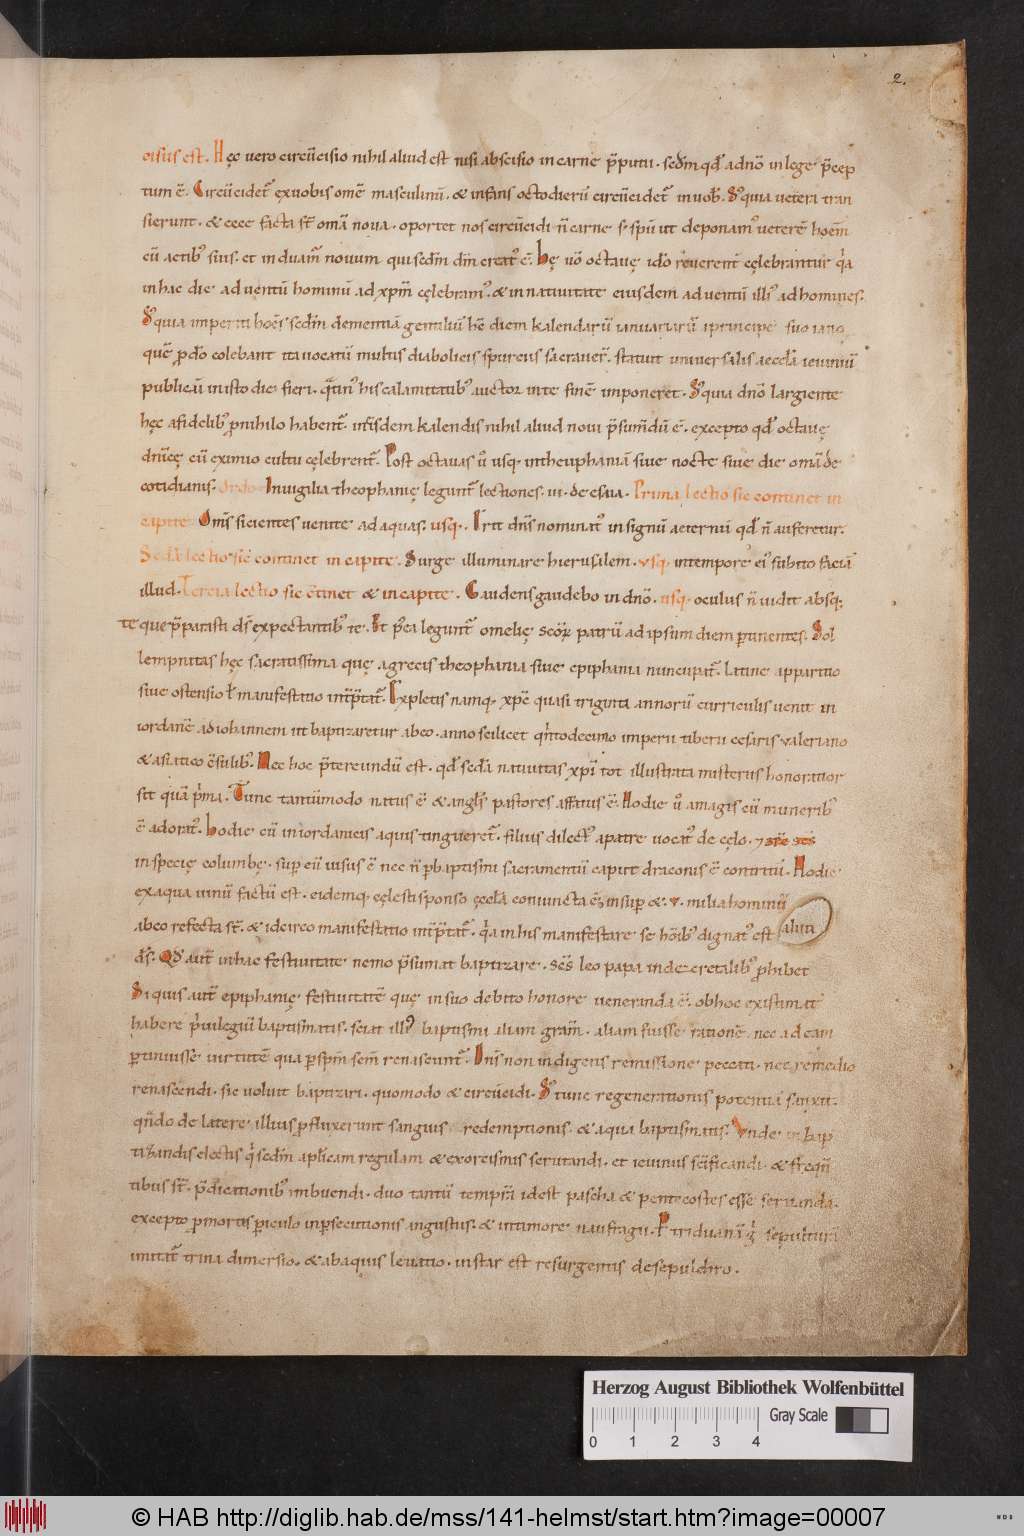 2.
cisus est. Hęc vero circūcisio nihil aliud est nisi abscisio in carne p̄putii. sedm qđ adnō in lege p̄cep
tum ē. Circūcidet̄ ex vobis om̄e masculinū. & infans octo dierū circūcidet̄ in vob̄. S; quia vetera tran
sierunt. & ecce facta st̄ om̄a nova. oportet nos circūcidi n̄ carne s; spū ut deponam᷒ veterē hoēm
cū actib᷒ suis. et induam᷒ novum qui sedm dm̄ creat᷒ ē. Hę v̄o octavę idō reverent̄ cęlebrantur q̄a
in hac die adventū hominū ad xpm̄ cęlebram᷒. & in nativitate eiusdem adventū illi᷒ ad homines.
S; quia imperiti hoēs sedm dementiā gentiliū hē diem kalendarū ianuariarū a principe suo iano
quē p dō colebant ita vocatū multis diabolicis spurciis sacraver̄. statuit universalis aecclā ieiuniū
publicū in isto die fieri. q̄tin᷒ his calamitatib᷒ auctor vite finē imponeret. S; quia dnō largiente
hęc a fidelib᷒ p nihilo habent̄. in iisdem kalendis nihil aliud novi p̄sumdū ē. excepto qđ octavę
dnicę cū eximio cultu cęlebrent̄. Post octavas v̄ usq. in theuphaniā sive nocte sive die om̄a de
cotidianis. Ordo In vigilia theophanię legunt̄ lectiones. iii. de esaia. Prima lectio sic continet in
capite Om̄s sicientes venite ad aquas. usq.. Erit dn̄s nominat᷒ in signū aeternū qđ n̄ auferetur.
Secda lectio sic continet in capite. Surge illuminare hierusalem. usq. in tempore ei᷒ subito faciā
illud. Tercia lectio sic c̄tinet & in capite. Gaudens gaudebo in dnō. usq. oculus n̄ vidit absq;
te que p̄parasti ds̄ expectantib᷒ te. Et p̄ea legunt̄ omelię scōꝝ patrū ad ipsum diem ꝑtinentes. Sol
lempnitas hęc sacratissima quę a grecis theophania sive epiphania nuncupat̄. latine apparitio
sive ostensio ł manifestatio int̄p̄tat̄. Expletis namq. xp̄c quasi triginta annorū curriculis venit in
iordanē ad iohannem ut baptizaretur ab eo. anno scilicet q̄ntodecimo imperii tiberii cesaris valeriano
& asiatico c̄sulib᷒. Nec hoc p̄tereundū est. qđ secda nativitas xp̄i tot illustrata misteriis honoratior
sit quā p̄ma. Tunc tantūmodo natus ē & angls̄ pastores affatus ē. Hodie v̄ a magis cū munerib᷒
ē adorat᷒. Hodie cū in iordanicis aquis tingueret̄. filius dilect᷒ a patre vocat᷒ de cęlo. ⁊ spc scs
in specię columbę. sup eū visus ē nec n̄ p baptismi sacramentū caput draconis ē contritū. Hodie
ex aqua vinū factū est. eidemq. cęlesti sponso ęcclā coniuncta ē; insup & .v. milia hominū
ab eo refecta st̄. & idcirco manifestatio int̄p̄tat̄. q̄a in his manifestare se hoib᷒ dignat᷒ est aliūi
ds̄. Qđ aut̄ in hac festivitate nemo p̄sumat baptizare. scs̄ leo papa in decretalib᷒ p̄hibet
Si quis aut̄ epiphanię festivitatē quę in suo debito honore veneranda ē. ob hoc existimat
habere p̄vilegiū baptismatis. sciat illi᷒ baptismi aliam gram̄. aliam fuisse rationē. nec ad eam
ꝑtinuisse virtutē qua ꝑ spm̄ scm̄ renascunt̄. Dn̄s non indigens remissione peccati. nec remedio
renascendi. sic voluit baptizari. quomodo & circūcidi. S; tunc regenerationis potentiā sanxit.
qn̄do de latere illius ꝓfluxerunt sanguis redemptionis. & aqua baptismatis. Unde in bap
tizandis electis q̄ sedm aplicam regulam & exorcismis scrutandi. et ieiuniis scificandi. & frequn̄
tibus st̄. p̄dicationib᷒ imbuendi. duo tantū tempora idest pascha & pentecostes esse servanda.
excepto p mortis ꝑiculo in ꝑsecutionis angustiis. & in timore naufragii. P triduanā g̊ sepulturā
imitat̄ trina dimersio. & ab aquis levatio. instar est resurgentis de sepulchro.
Herzog August Bibliothek Wolfenbüttel
Gray Scale
0 1 2 3 4
© HAB http://diglib.hab.de/mss/141-helmst/start.htm?image=00007